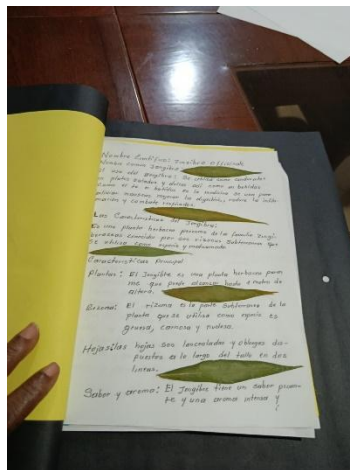 Nombre Científico: Jengibre Officinale
Nombre común Jengibre
El uso del jengibre: Se utiliza como condimento
en platos salados y dulces así como en bebidas
como el té e
aliviar nauseas, mejorar la digestión, reduce la infla-
mación y combate resfriados.
Las Características del Jengibre:
Es una planta herbácea perenne de la familia Zingi-
beraceae conocida por sus rizomas subterráneos que
Se utiliza como especia y medicamento
Características Principal
Plantas: El Jengibre es una planta herbácea peren
ne que puede alcanzar hasta 2 metros de
altura.
Rizoma: El rizoma es la parte Subterránea de la
planta que se utiliza como especia es
gruesa, carnosa y nudosa.
Hojas: las hojas son lanceoladas y oblongas dis-
puestas a lo largo del tallo en dos
lineas.
Sabor y aroma: El Jengibre tiene un sabor pican-
te y una aroma intensa y